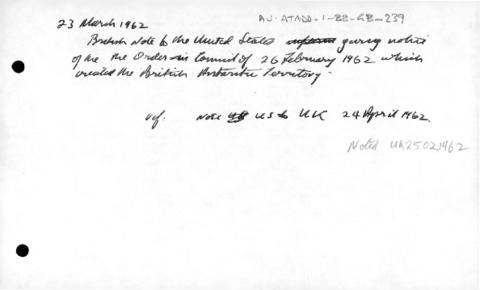 AU-ATADD-1-BB-GB-239
23 March 1962
British Note to the United States giving notice
of the the Order-in-Council of 26 February 1962 which
created the British Antarctic Territory.
cf. Note US to UK 24 April 1962.
Noted UK25021962